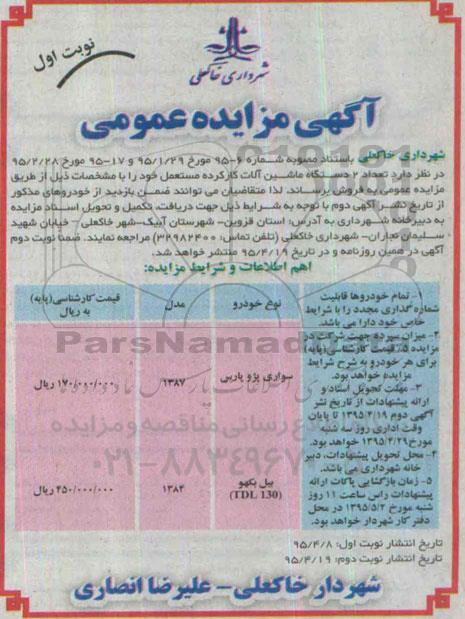 نوبت اول
شهرداری خاکعلی
آگهی مزایده عمومی
شهرداری خاکعلی باستناد مصوبه شماره ۶-۹۵ مورخ ۹۵/۱/۲۹ و ۱۷-۹۵ مورخ ۹۵/۲/۲۸
در نظر دارد تعداد ۲ دستگاه ماشین آلات کارکرده مستعمل خود را با مشخصات ذیل از طریق
مزایده عمومی به فروش برساند. لذا متقاضیان می توانند ضمن بازدید از خودروهای مذکور
از تاریخ نشر آگهی دوم با توجه به شرایط ذیل جهت دریافت، تکمیل و تحویل اسناد مزایده
به دبیرخانه شهرداری به آدرس: استان قزوین- شهرستان آبیک-شهر خاکعلی - خیابان شهید
سلیمان نجاران- شهرداری خاکعلی (تلفن تماس: ۳۲۹۸۲۴۰۰) مراجعه نمایند. ضمنا نوبت دوم
آگهی در همین روزنامه و در تاریخ ۹۵/۴/۱۹ منتشر خواهد شد.
اهم اطلاعات و شرایط مزایده:
۱- تمام خودروها قابلیت
شماره گذاری مجدد را با شرایط
خاص خود دارا می باشد.
۲- میزان سپرده جهت شرکت در
مزایده ۵٪ قیمت کارشناسی(پایه)
برای هر خودرو به شرح شرایط
مزایده خواهد بود.
۳- مهلت تحویل اسناد و
ارائه پیشنهادات از تاریخ نشر
آگهی دوم ۱۳۹۵/۴/۱۹ تا پایان
وقت اداری روز سه شنبه
مورخ ۱۳۹۵/۴/۲۹ خواهد بود.
۴- محل تحویل پیشنهادات، دبیر
خانه شهرداری می باشد.
۵- زمان بازگشایی پاکات ارائه
پیشنهادات راس ساعت ۱۱ روز
شنبه مورخ ۱۳۹۵/۵/۲ در محل
دفتر کار شهردار خواهد بود.
نوع خودرو مدل قیمت کارشناسی(پایه) به ریال
سواری پژو پارس ۱۳۸۷ ۱۷۰/۰۰۰/۰۰۰ ریال
بیل بکهو (TDL 130) ۱۳۸۴ ۴۵۰/۰۰۰/۰۰۰ ریال
ParsNamadData
۰۲۱-۸۸۳۴۹۶۷۰
تاریخ انتشار نوبت اول: ۹۵/۴/۸
تاریخ انتشار نوبت دوم: ۹۵/۴/۱۹
شهردار خاکعلی- علیرضا انصاری